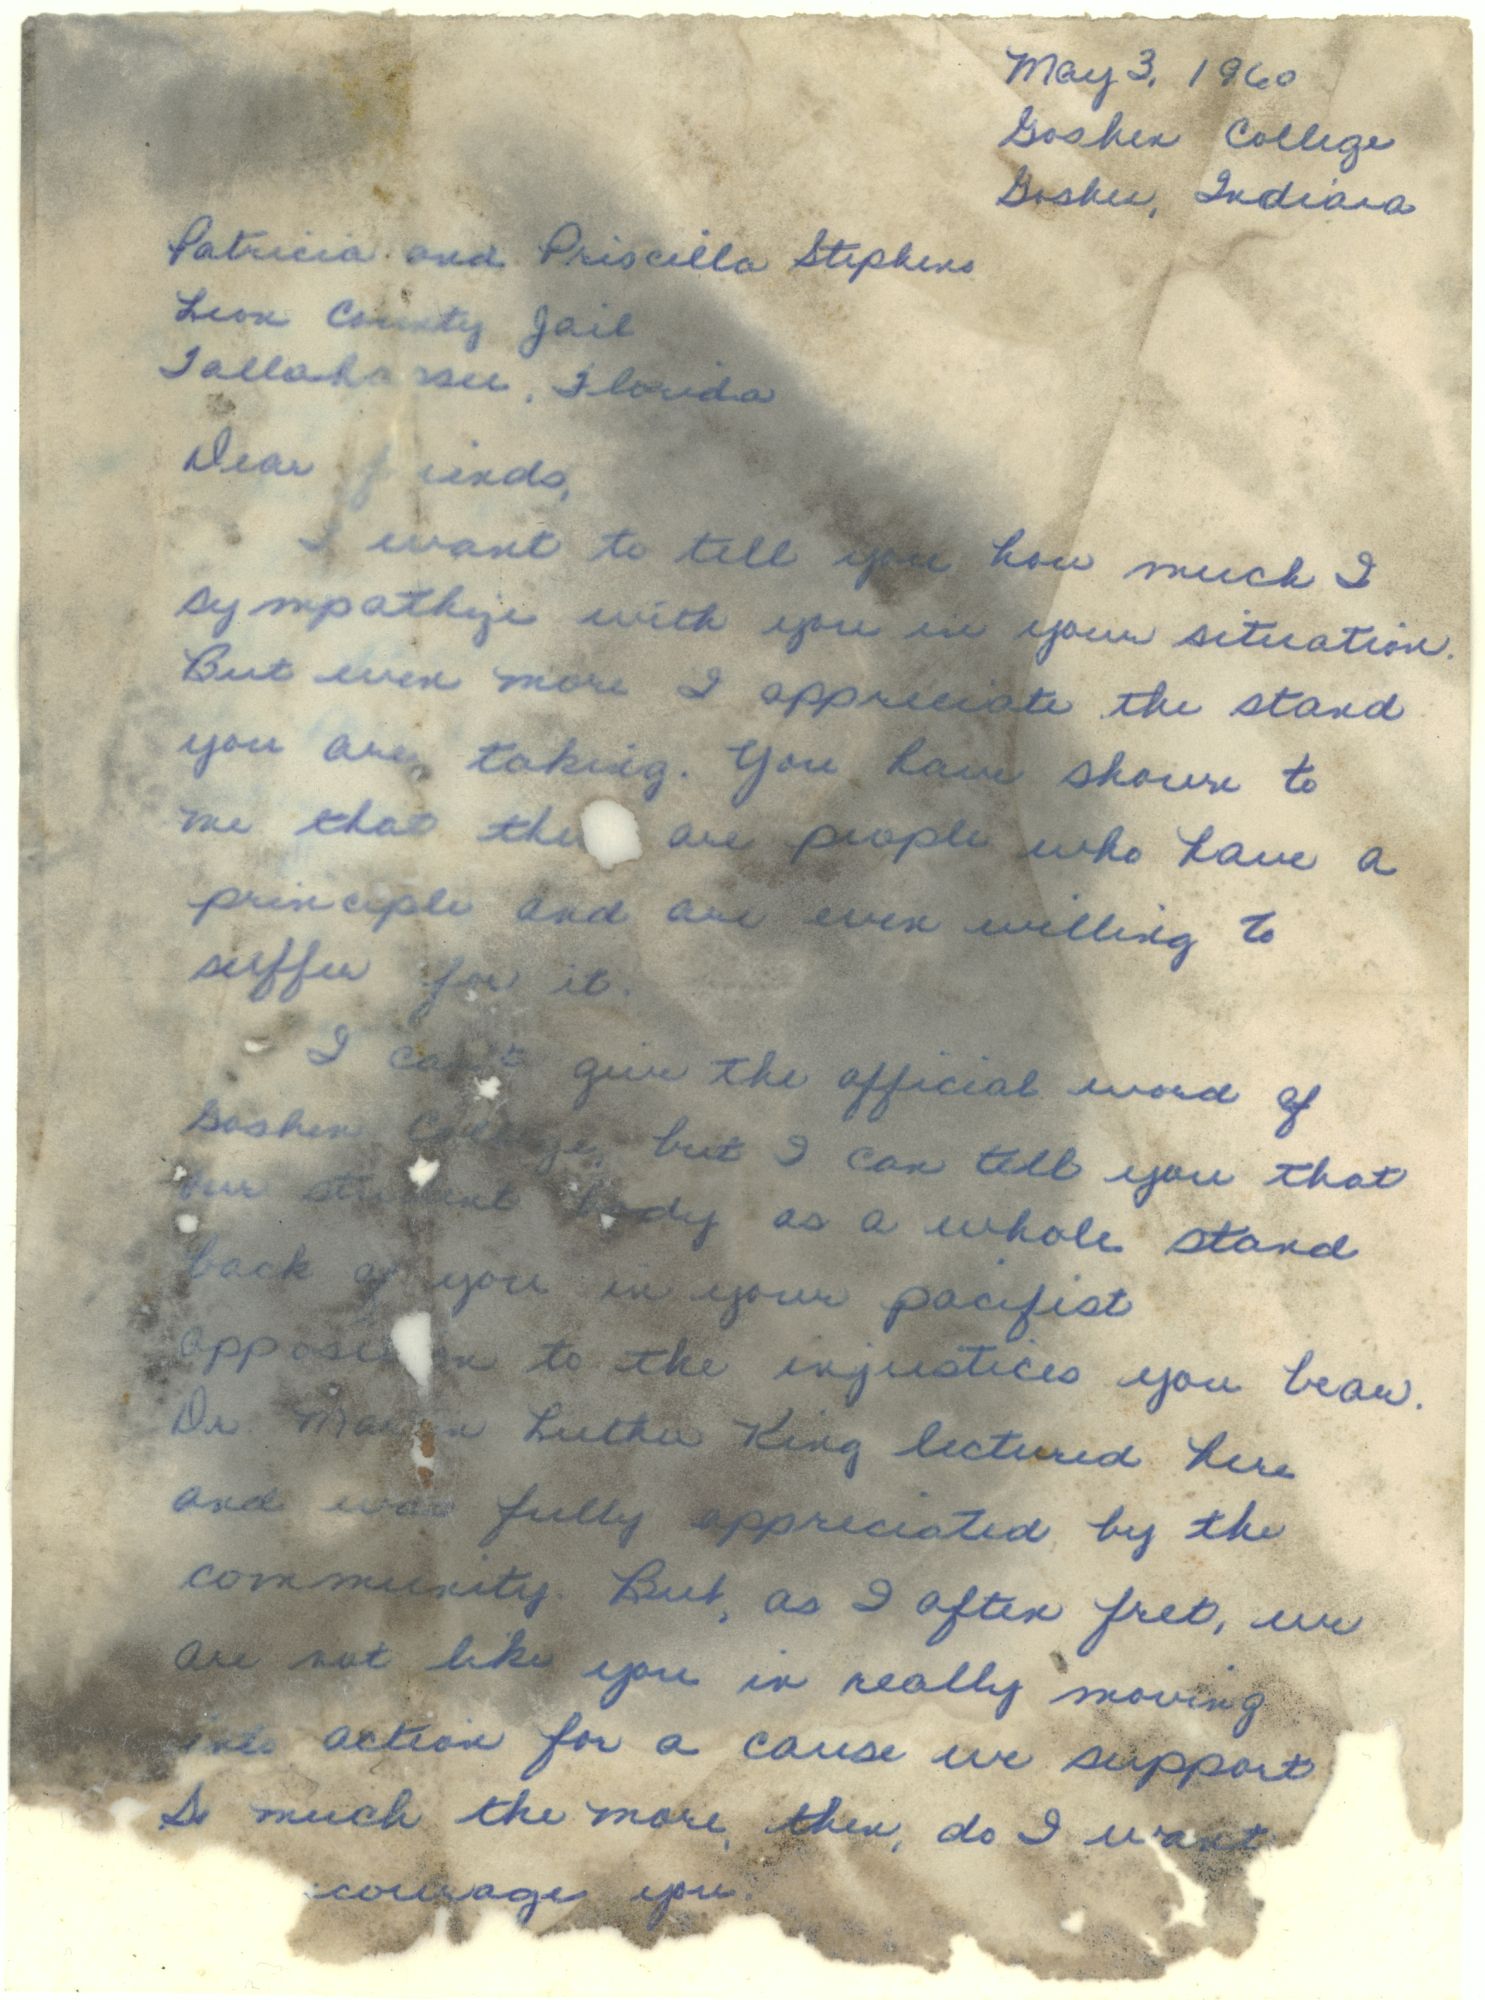 May 3, 1960
Goshen College
Goshen, Indiana
Patricia and Priscilla Stephens
Leon County Jail
Tallahassee, Florida
Dear friends,
I want to tell you how much I
sympathize with you in your situation.
But even more I appreciate the stand
you are taking. You have shown to
me that the are people who have a
principle and are even willing to
suffer for it.
I can't give the official word of
Goshen College, but I can tell you that
our student body as a whole stand
back of you in your pacifist
opposition to the injustices you bear.
Dr. Martin Luther King lectured here
and was fully appreciated by the
community. But, as I often fret, we
are not like you in really moving
into action for a cause we support
So much the more, then, do I want
courage you.